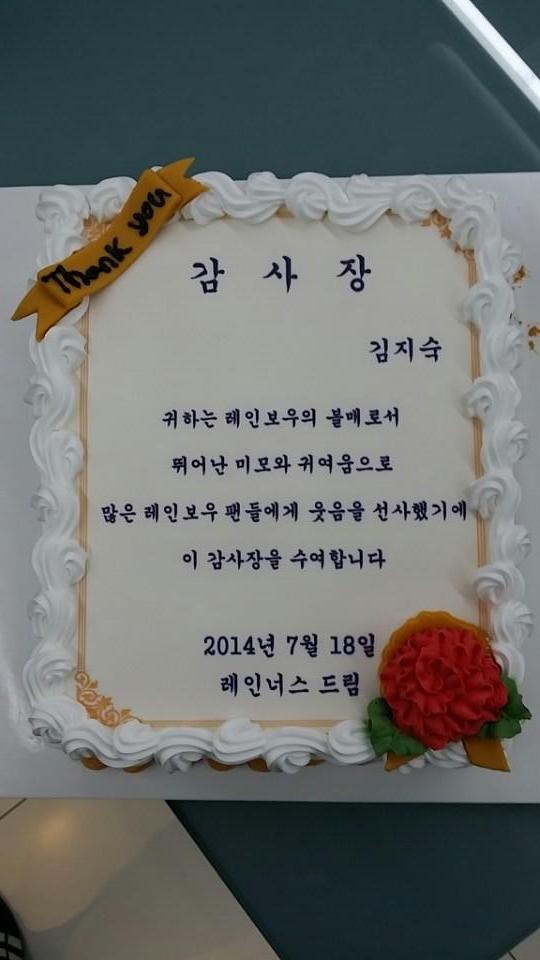 Thank you
감 사 장
김지숙
귀하는 레인보우의 볼매로서
뛰어난 미모와 귀여움으로
많은 레인보우 팬들에게 웃음을 선사했기에
이 감사장을 수여합니다
2014년 7월 18일
레인너스 드림